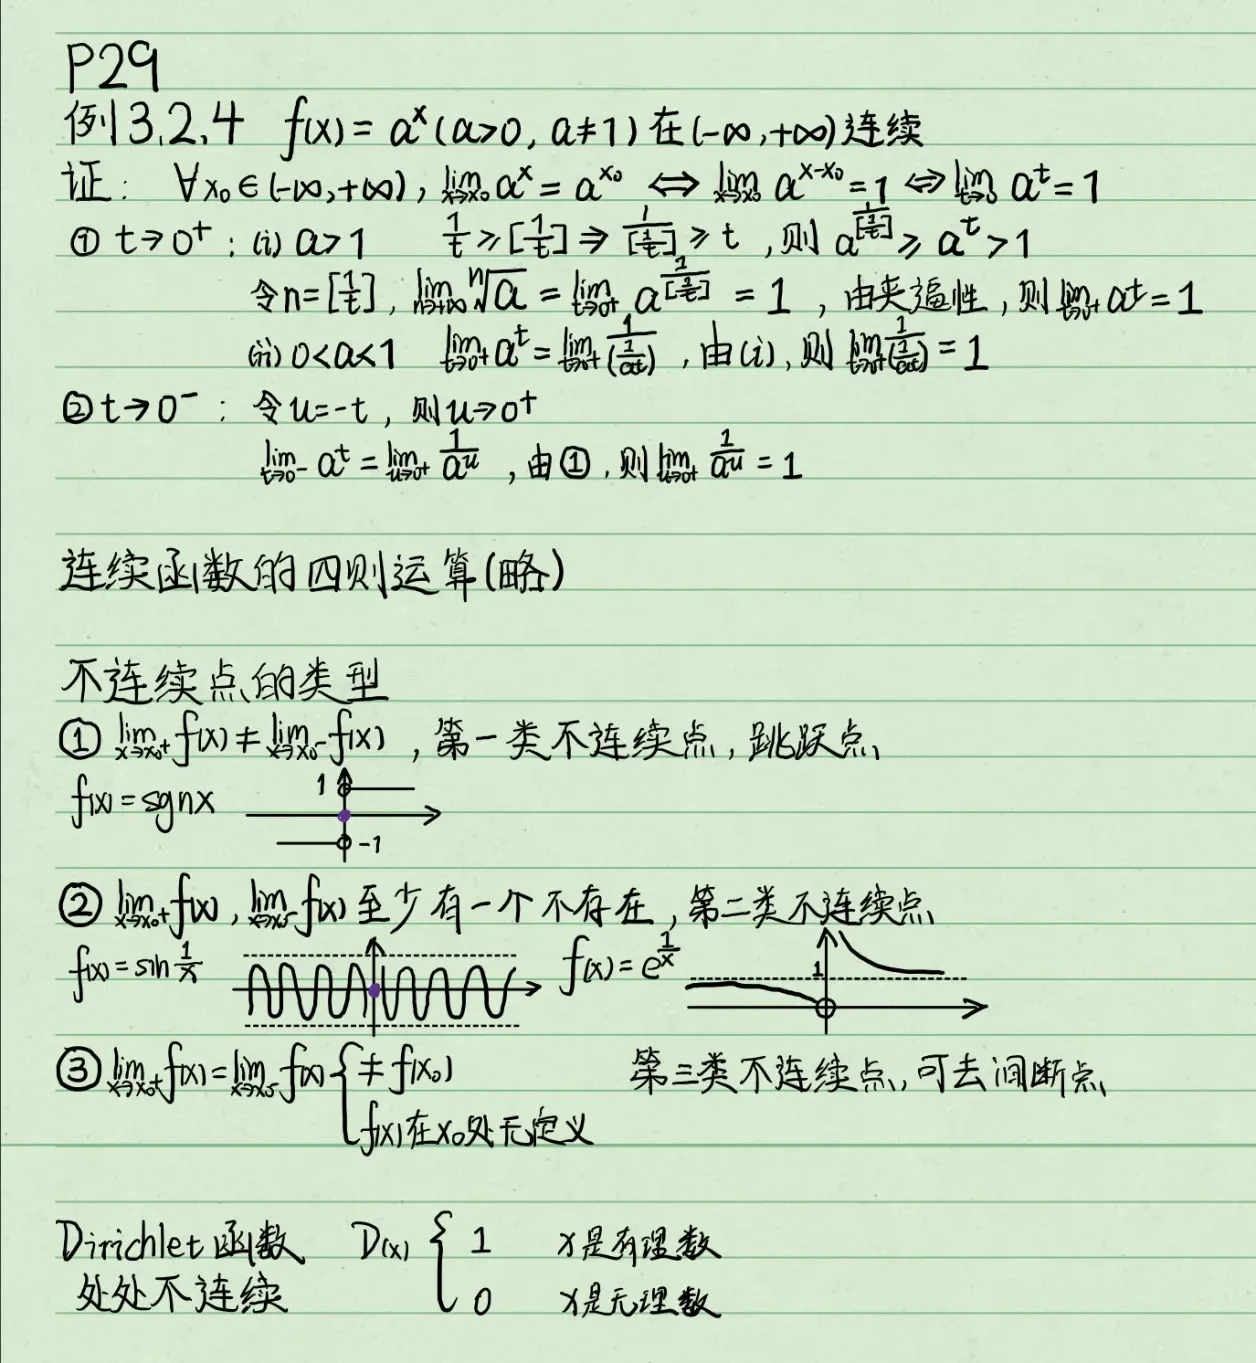 P29
例3,2,4 f(x) = a^x (a>0, a≠1) 在(-∞,+∞)连续
证: ∀x₀∈(-∞,+∞), lim_{x→x₀} a^x = a^{x₀} ⇔ lim_{x→x₀} a^{x-x₀} = 1 ⇔ lim_{t→0} a^t = 1
① t→0⁺: (i) a>1 1/t ≥ [1/t] ⇒ 1/[1/t] ≥ t, 则 a^{1/[1/t]} ≥ a^t > 1
令n=[1/t], lim_{n→+∞} ⁿ√a = lim_{t→0⁺} a^{1/[1/t]} = 1, 由夹逼性, 则 lim_{t→0⁺} a^t = 1
(ii) 0<a<1 lim_{t→0⁺} a^t = lim_{t→0⁺} 1/(1/a^t), 由(i), 则 lim_{t→0⁺} 1/(1/a^t) = 1
② t→0⁻: 令u=-t, 则u→0⁺
lim_{t→0⁻} a^t = lim_{u→0⁺} 1/a^u, 由①, 则 lim_{u→0⁺} 1/a^u = 1
连续函数的四则运算(略)
不连续点的类型
① lim_{x→x₀⁺} f(x) ≠ lim_{x→x₀⁻} f(x), 第一类不连续点, 跳跃点
f(x) = sgnx 1 -1
② lim_{x→x₀⁺} f(x), lim_{x→x₀⁻} f(x) 至少有一个不存在, 第二类不连续点
f(x) = sin 1/x f(x) = e^{1/x} 1
③ lim_{x→x₀⁺} f(x) = lim_{x→x₀⁻} f(x) { ≠ f(x₀) 第三类不连续点, 可去间断点
f(x)在x₀处无定义
Dirichlet函数 D(x) { 1 x是有理数
处处不连续 0 x是无理数